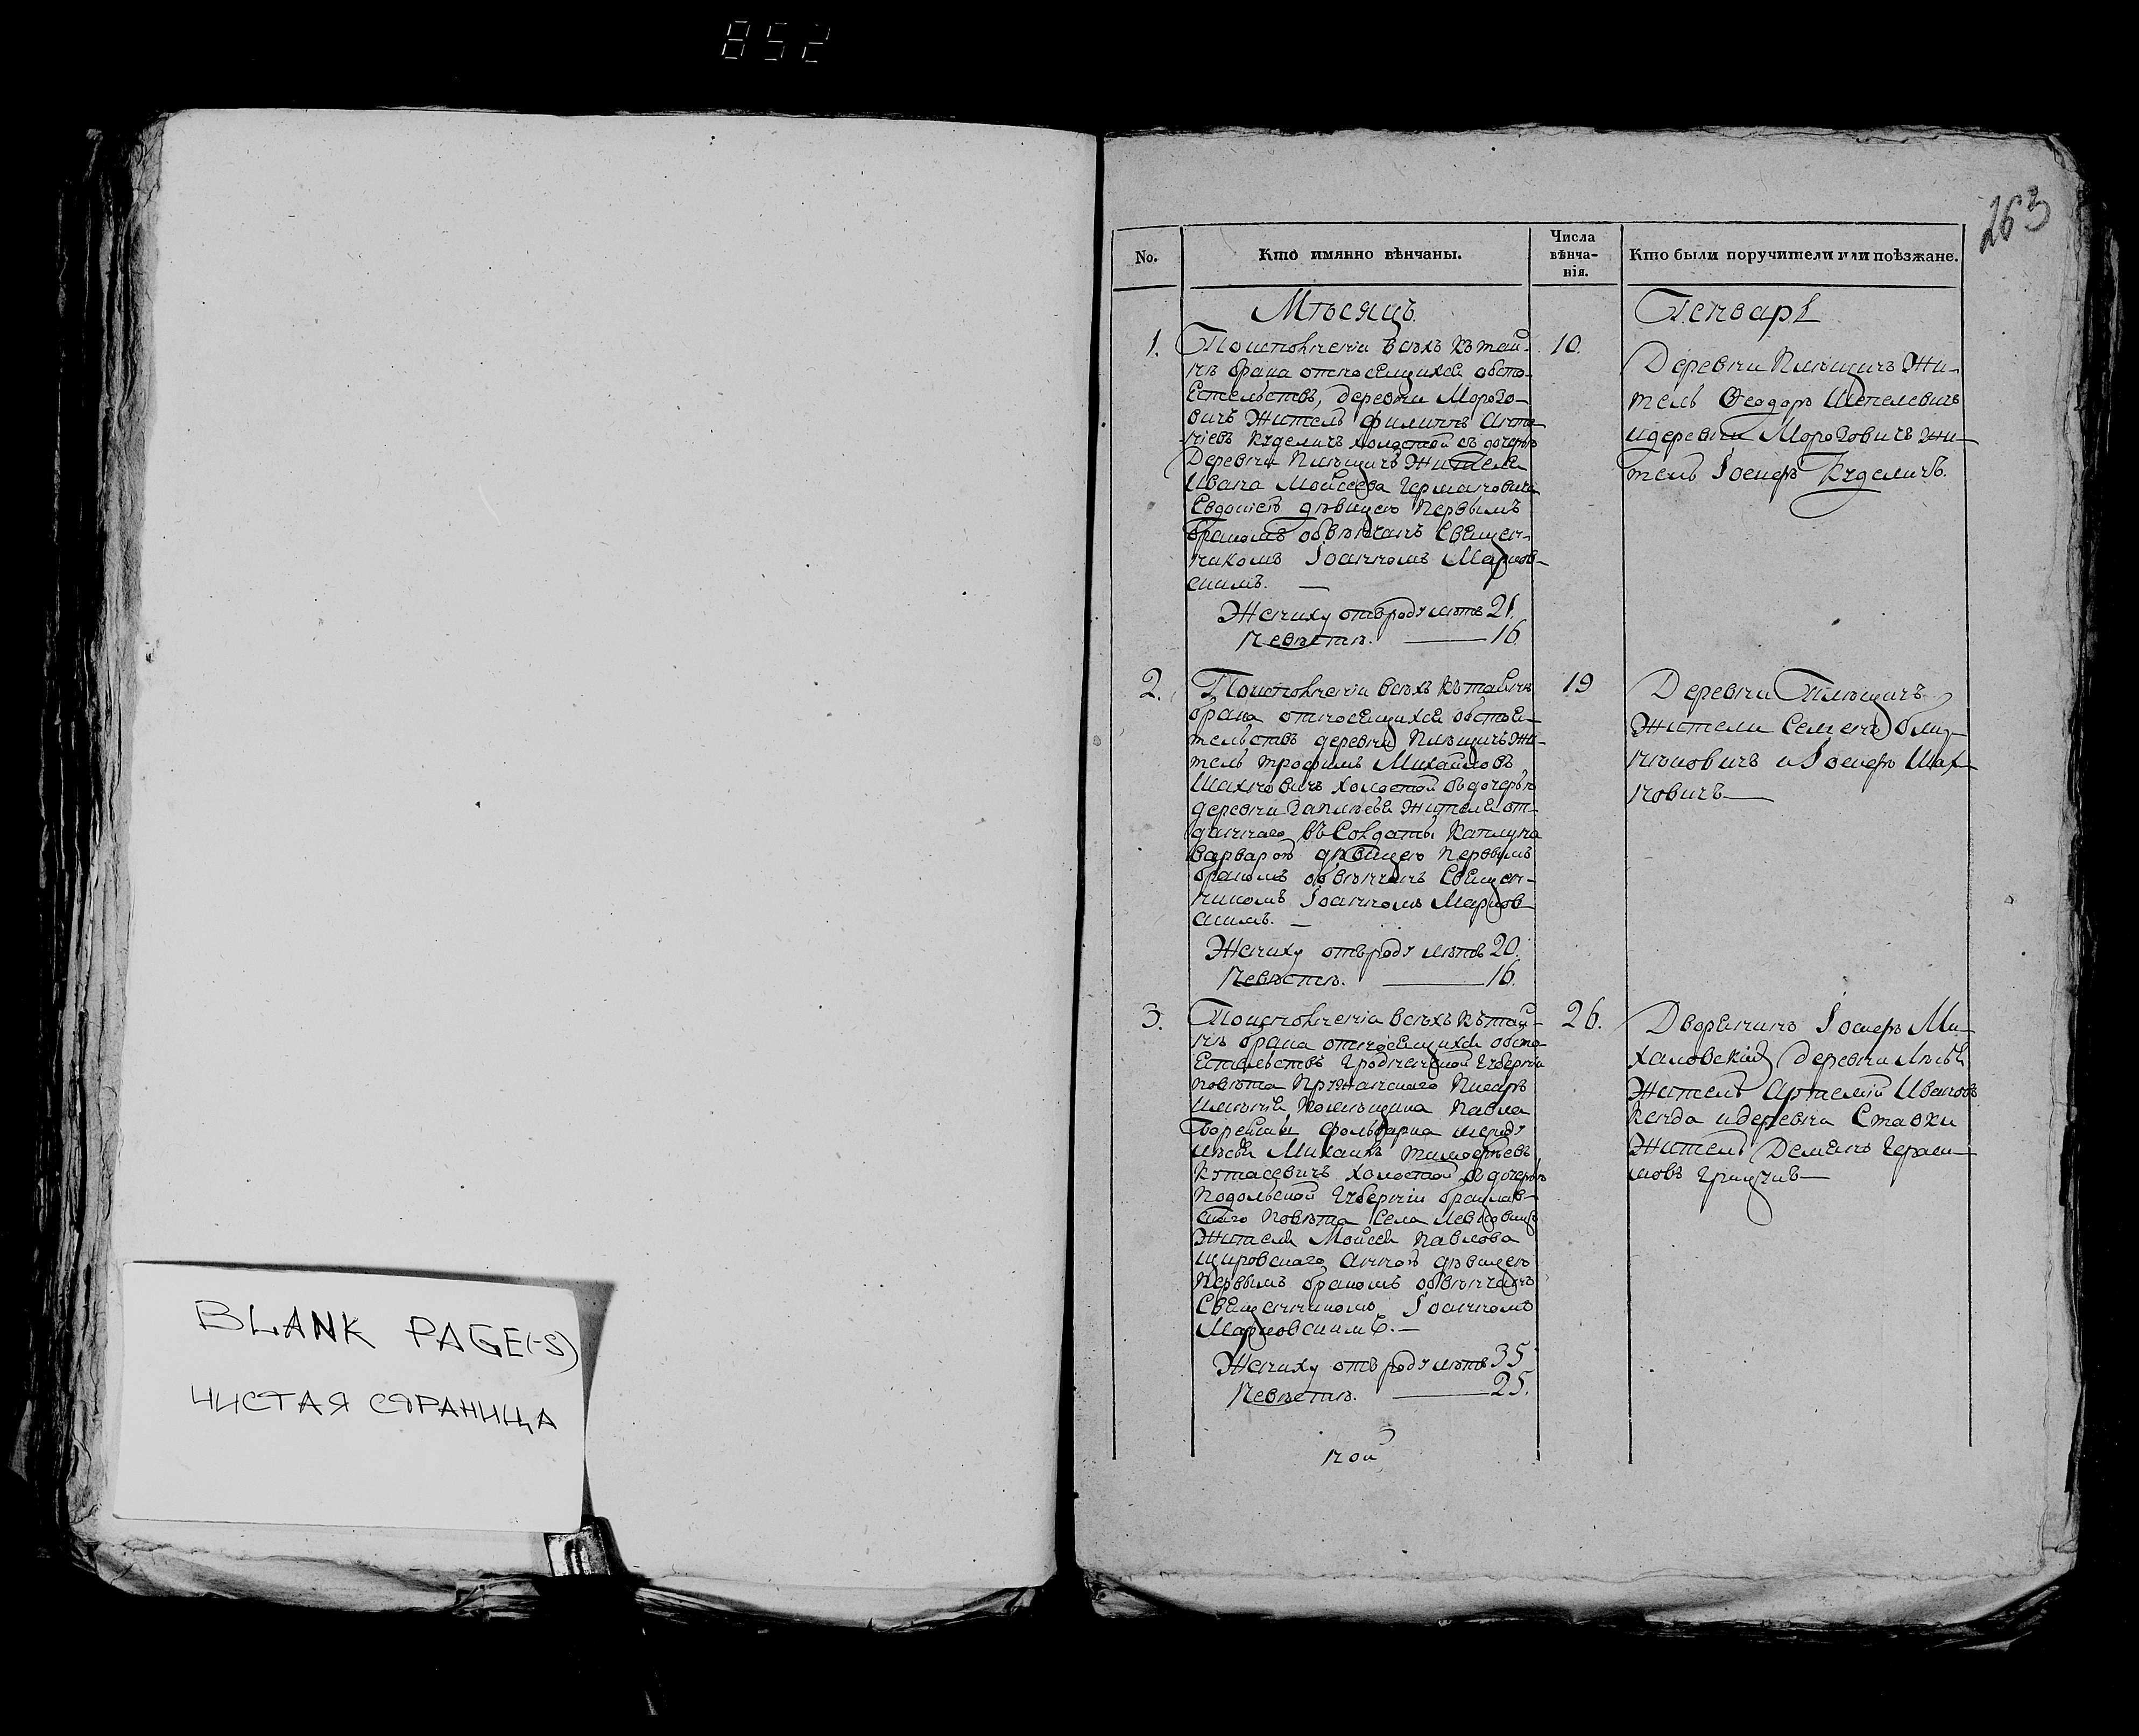 852
263
No.
Кто имянно вѣнчаны.
Числа
вѣнча-
нія.
Кто были поручители или поѣзжане.
Мѣсяцъ
Генварь
1.
По исполненіи всѣхъ къ тай-
нѣ брака относящихся обсто-
ятельствъ, деревни Морозо-
вичъ житель Филиппъ Анто
ніевъ Куделичъ холостой съ дочерью
Деревни жителя
Ивана Моисеева Германовича
Евдокіею дѣвицею первымъ
бракомъ обвѣнчанъ Священ-
никомъ Іоанномъ
Жениху отъ роду лѣтъ 21.
Невѣстѣ. — 16
10.
Деревни жи-
тель Ѳеодоръ
и деревни Морозовичъ жи-
тель Іосифъ Куделичъ.
2.
По исполненіи всѣхъ къ тайнѣ
брака относящихся обстоя-
тельствъ деревни жи-
тель Трофимъ Михайловъ
Шахновичъ холостой съ дочерью
деревни жителя от-
даннаго въ Солдаты Каплуна
Варварою дѣвицею первымъ
бракомъ обвѣнчанъ Священ-
никомъ Іоанномъ
Жениху отъ роду лѣтъ 20.
Невѣстѣ. — 16.
19
Деревни
Жители Семенъ
и Іосифъ Шах-
новичъ —
3.
По исполненіи всѣхъ къ тай-
нѣ брака относящихся обсто
ятельствъ Гродненской Губерніи
повѣта Пружанскаго
имѣнія помѣщика Павла
фольварка
Михаилъ Тимофѣевъ
Кутасевичъ холостой съ дочерью
Подольской Губерніи Брацлав-
скаго повѣта Села
жителя Моисея Павлова
Щировскаго Анною дѣвицею
первымъ бракомъ обвѣнчанъ
Священникомъ Іоанномъ
Жениху отъ роду лѣтъ 35
Невѣстѣ. — 25.
26.
Дворянинъ Іосифъ Ми-
халовскій деревни
Житель Артемій Ивановъ
и деревни Ставки
Житель Демьянъ Гераси-
мовъ
ной
BLANK PAGE(-S)
ЧИСТАЯ СТРАНИЦА